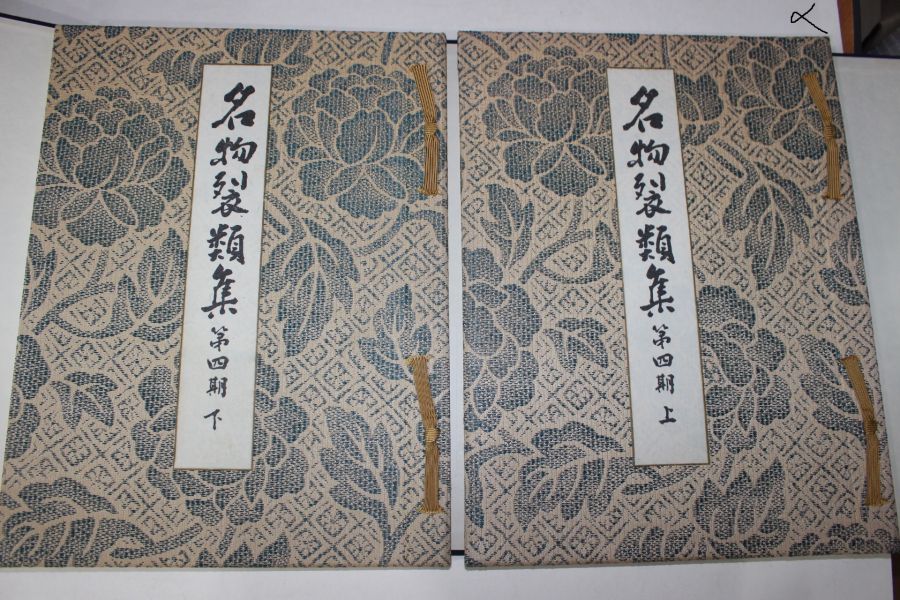 名物裂類集第四期上
名物裂類集第四期下